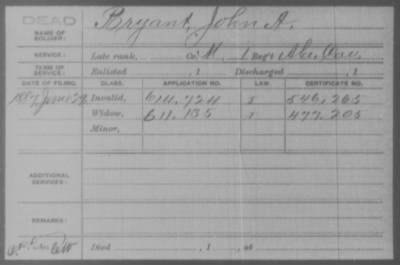 DEAD
NAME OF SOLDIER: Bryant, John A.
SERVICE: Late rank, Co. M, 1 Reg't Ala. Cav.
TERM OF SERVICE: Enlisted , 1 Discharged , 1
DATE OF FILING. CLASS. APPLICATION NO. LAW. CERTIFICATE NO.
Invalid, 614.724 546.265
Widow, 611.185 477.205
Minor,
ADDITIONAL SERVICES:
REMARKS:
Died , 1 , at